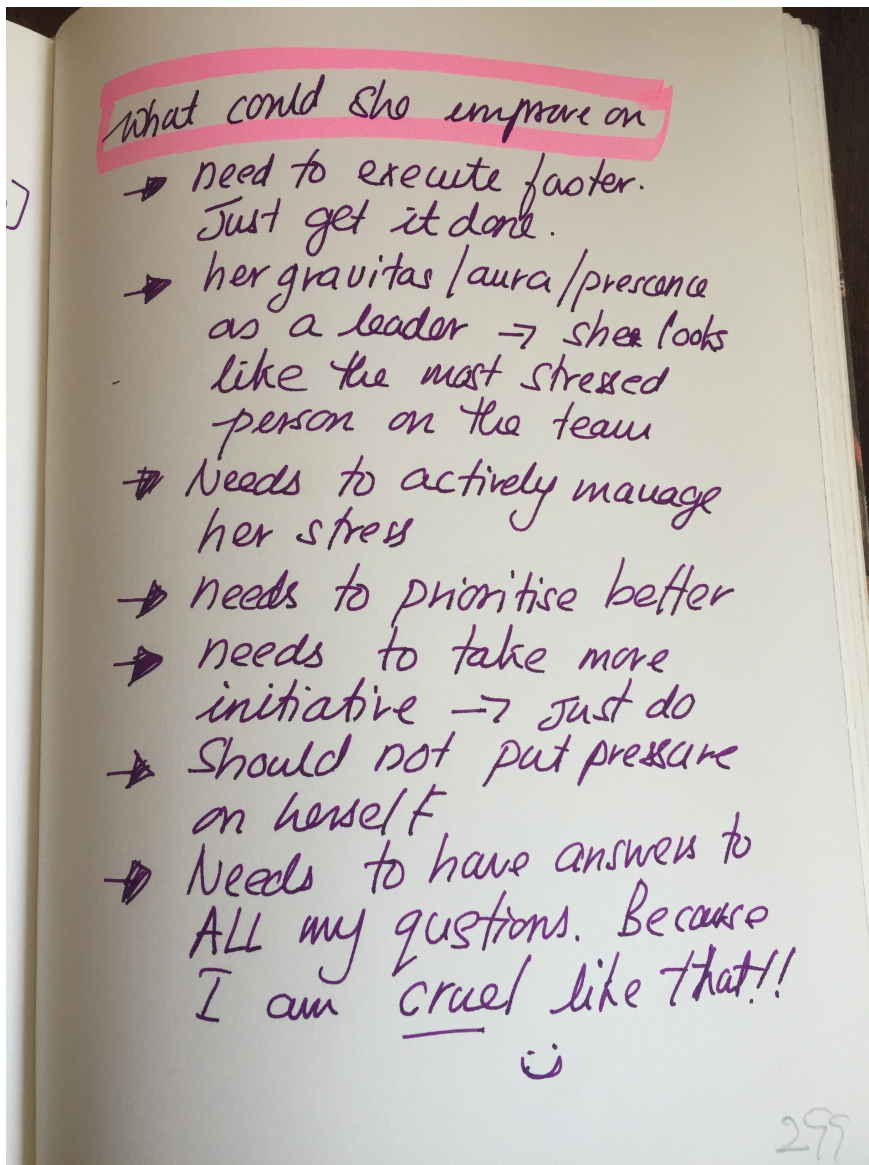 What could she improve on
→ need to execute faster.
Just get it done.
→ her gravitas / aura / prescence
as a leader → she looks
like the most stressed
person on the team
→ Needs to actively manage
her stress
→ needs to prioritise better
→ needs to take more
initiative → Just do
→ Should not put pressure
on herself
→ Needs to have answers to
ALL my qustions. Because
I am cruel like that!!
299